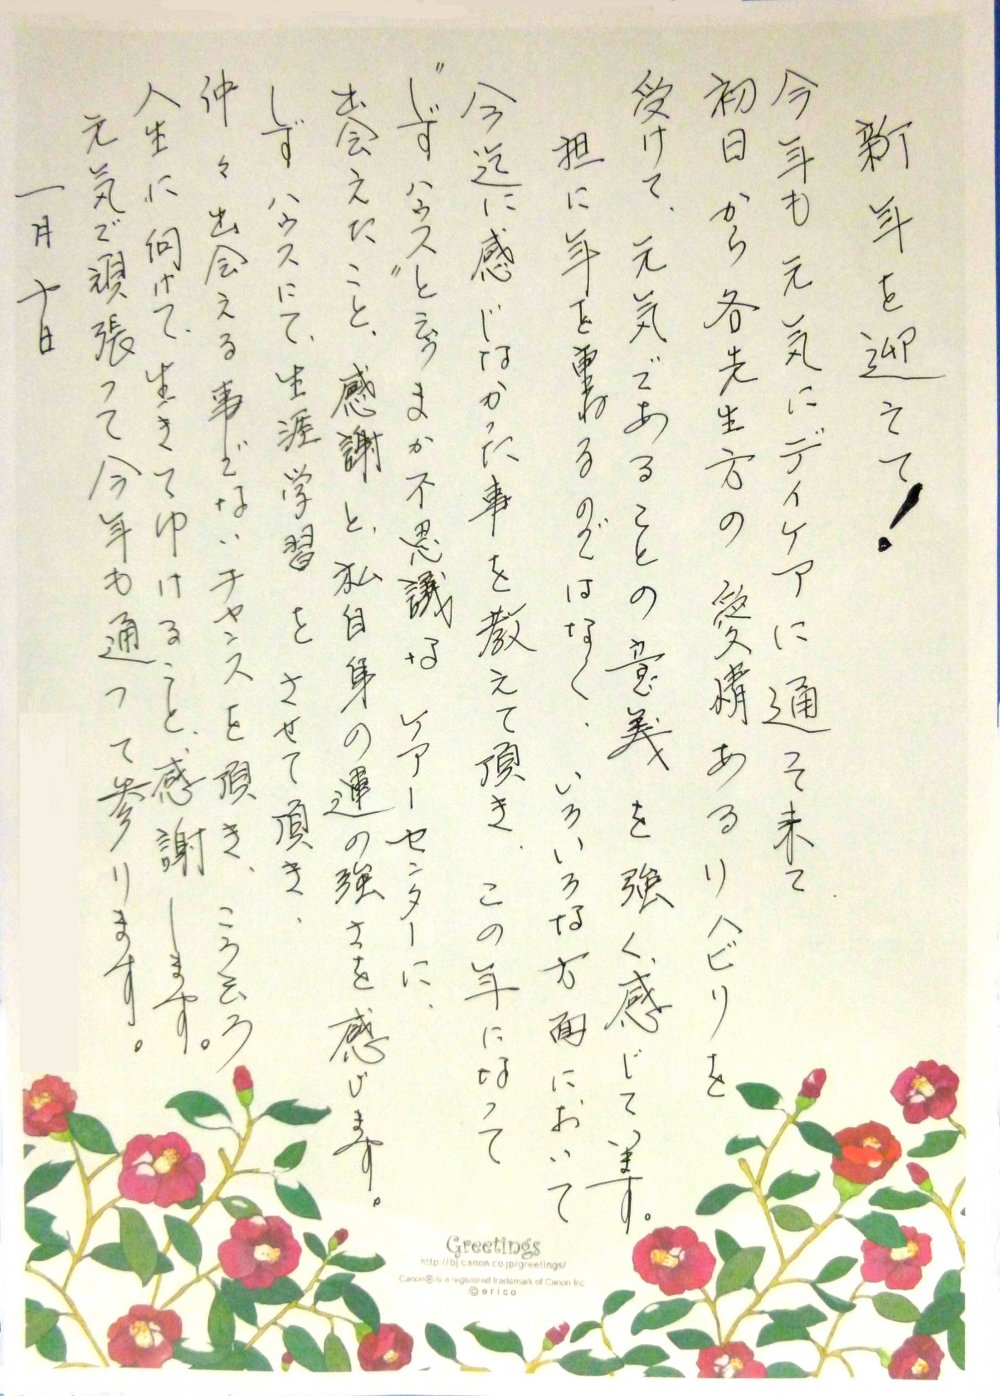 新年を迎えて!
今年も元気にディケアに通そ来て
初日から各先生方の愛情あるリハビリを
受けて、元気であることの意義を強く感じています。
担に年を重ねるのではなく、いろいろな方面において
今迄に感じなかった事を教えて頂き、この年になって
"しずハウス"と言うまか不思議なケアーセンターに、
出会えたこと、感謝と、私自身の運の強さを感じます。
しずハウスにて、生涯学習をさせて頂き、
仲々出会える事でないチャンスを頂き、こうぞろ
人生に向けて、生きてゆけること、感謝します。
元気で頑張って今年も通って参ります。
一月十日
Greetings
http://bj.canon.co.jp/greetings/
Canon® is a registered trademark of Canon Inc.
© erico